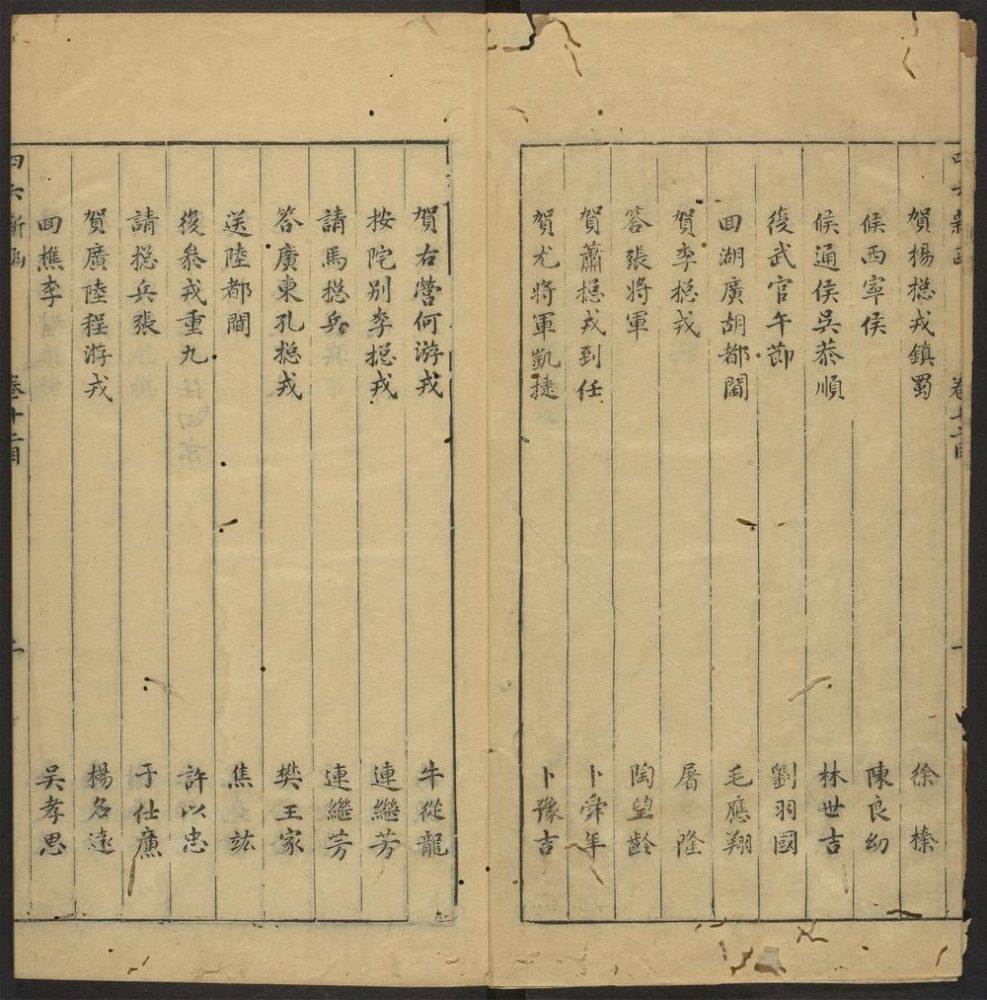 四六新函 卷十二目 一
賀楊總戎鎮蜀 徐榛
候西寧侯 陳良幼
候通侯吳恭順 林世吉
復武官午節 劉羽國
囬湖廣胡都閫 毛應翔
賀李總戎 屠隆
答張將軍 陶望齡
賀蕭總戎到任 卜舜年
賀尤將軍凱捷 卜豫吉
賀右營何游戎 牛從龍
按院别李摠戎 連繼芳
請馬摠兵 連繼芳
答廣東孔摠戎 樊王家
送陸都閫 焦竑
復叅戎重九 許以忠
請摠兵張 于仕廉
賀廣陸程游戎 楊名遠
囬樵李 吳孝思
四六新函 卷十二目 二